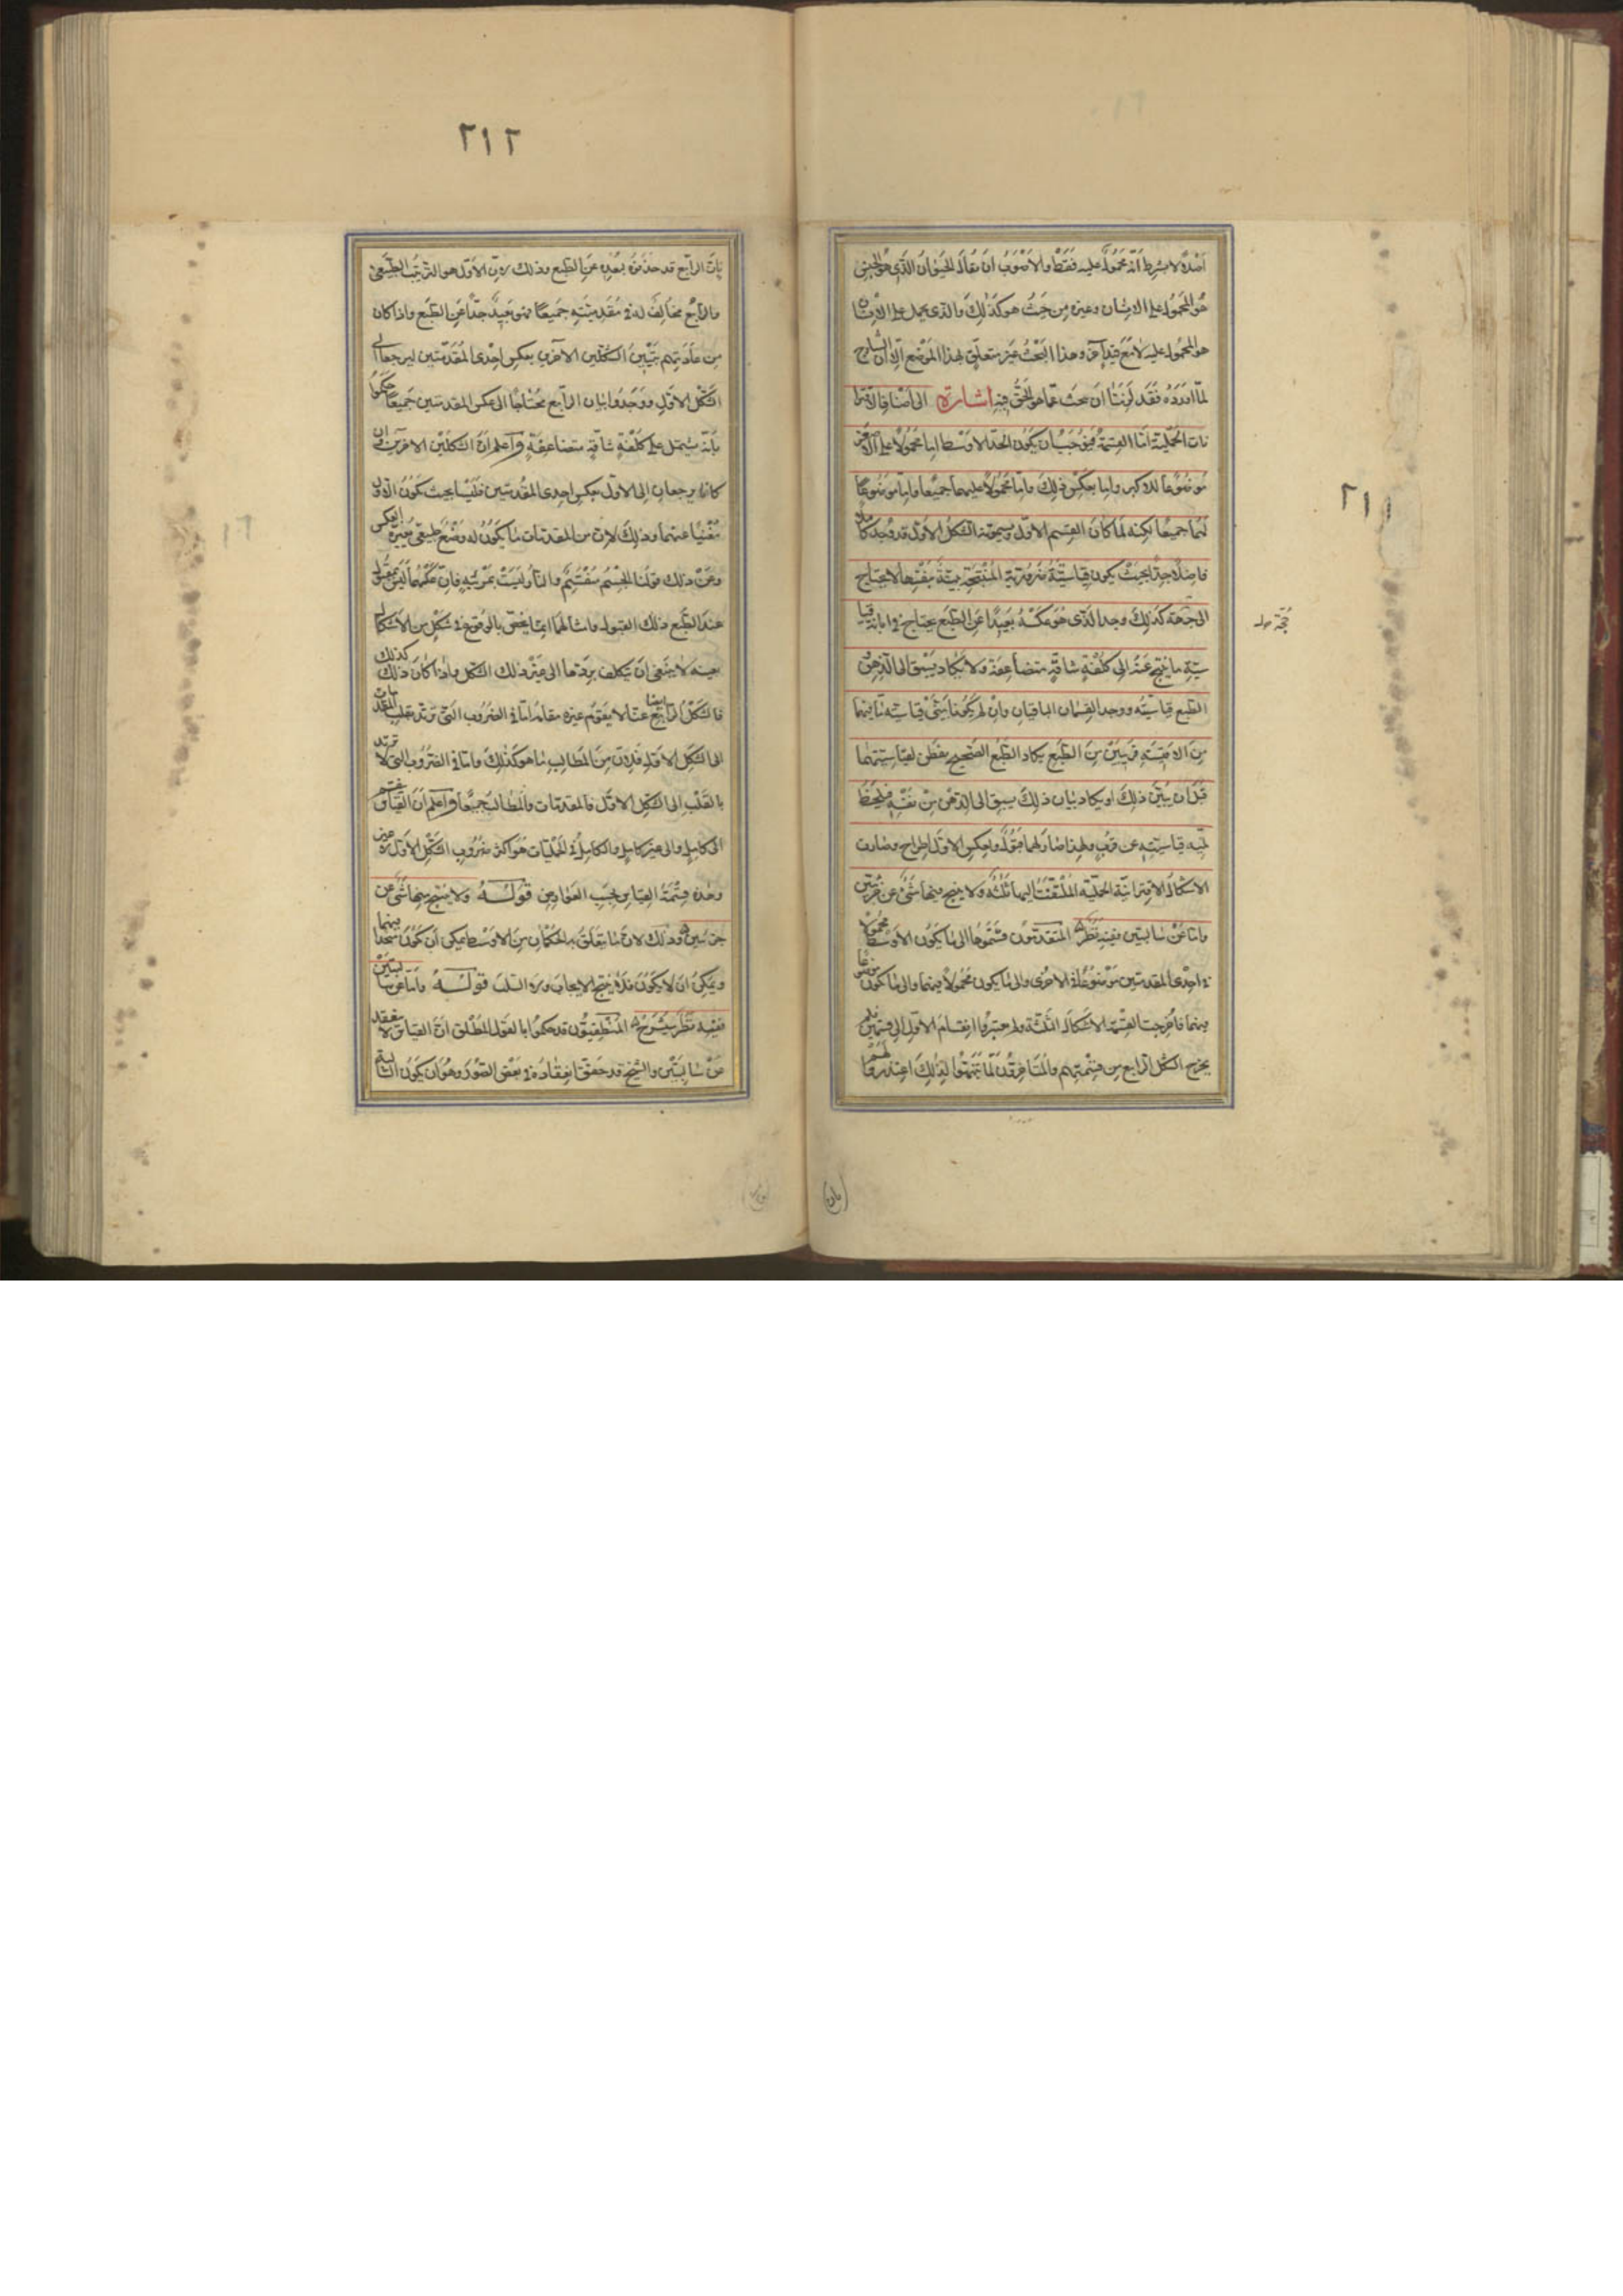 ٢١١
اخذه لا بشرط انه محمول عليه فقط والاصوب ان يقال الحيوان الذي هو الجنس
هو المحمول على الانسان وغيره من حيث هو كذلك والذي يحمل على الانسان
هو المحمول عليه لا مع قيد آخر وهذا البحث غير متعلق بهذا الموضع الا ان الشارح
لما اورده فقد لزمنا ان نبحث عما هو الحق فيه اشارة الى اصناف الاقترا
نات الحملية اما القسمة فيوجب ان يكون الحد الاوسط اما محمولا على الاصغر
موضوعا للاكبر واما بعكس ذلك واما محمولا عليهما جميعا واما موضوعا
لهما جميعا لكنه لما كان القسم الاول ويسمونه الشكل الاول قد وجد كاملا
فاضلا جدا بحيث يكون قياسيته ضرورية المنتجة بينة بنفسها لا يحتاج
الى حجة كذلك وجد الذي هو عكسه بعيدا عن الطبع يحتاج في ابانة قيا
سية ما ينتج عنه الى كلفة شاقة متضاعفة ولا يكاد يسبق الى الذهن
الطبع قياسيته ووجد القسمان الباقيان وان لم يكونا بيني قياسية ما فيهما
من الاقيسة قريبين من الطبع يكاد الطبع الصحيح يفطن لقياسيتهما
قبل ان يبين ذلك او يكاد بيان ذلك يسبق الى الذهن من نفسه فيلحظ
لمية قياسيته عن قرب ولهذا صار لهما قبول ولعكس الاول اطراح وصارت
الاشكال الاقترانية الحملية الملتفت اليها ثلثة ولا ينتج منها شئ عن جزئيتين
واما عن سالبتين ففيه نظر المتقدمون قسموها الى ما يكون الاوسط محمولا
في احدى المقدمتين موضوعا في الاخرى والى ما يكون محمولا فيهما والى ما يكون موضوعا
فيهما فاخرجت القسمة الاشكال الثلثة ولم يعتبروا انقسام الاول الى قسمين فلم
يخرج الشكل الرابع من قسمتهم والمتاخرون لما تنبهوا لذلك اعتذروا لهم
٢١٢
بان الرابع قد حذفوه لبعده عن الطبع وذلك لان الاول هو الترتيب الطبيعي
والرابع مخالف له في مقدمتيه جميعا فهو بعيد جدا عن الطبع واذا كان
من عادتهم تبيين الشكلين الاخرين بعكس احدى المقدمتين ليرجعا الى
الشكل الاول ووجدوا بيان الرابع محتاجا الى عكس المقدمتين جميعا حكموا
بانه يشتمل على كلفة شاقة متضاعفة واعلم ان الشكلين الاخرين وان
كانا يرجعان الى الاول بعكس احدى المقدمتين فليسا بحيث يكون الاول
مغنيا عنهما وذلك لان من المقدمات ما يكون له وضع طبيعي يغيره العكس
وعن ذلك قولنا الجسم منقسم والنار ليست بمرئية فان عكسهما ليس بمقبول
عند الطبع ذلك القبول وامثالهما انما يختص بالوقوع في شكل من الاشكال
بعينه لا ينبغي ان يتكلف بردها الى غير ذلك الشكل واذا كان ذلك كذلك
فالشكل الرابع ايضا لا يقوم غيره مقامه اما في الضروب التي ترتد بقلب المقدمات
الى الشكل الاول فلان من المطالب ما هو كذلك واما في الضروب التي لا ترتد
بالقلب الى الشكل الاول فالمقدمات والمطالب جميعا واعلم ان القياس ينقسم
الى كامل والى غير كامل والكامل في الحمليات هو اكثر ضروب الشكل الاول لا غير
وهذه قسمة القياس بحسب العوارض قوله ولا ينتج منها شئ عن
جزئيتين وذلك لان ما يتعلق به الحكمان من الاوسط يمكن ان يكون متحدا فيهما
ويمكن ان لا يكون فلا ينتج الايجاب ولا السلب قوله واما عن سالبتين
ففيه نظر سيشرح المنطقيون قد حكموا بالقول المطلق ان القياس لا ينعقد
عن سالبتين والشيخ قد حقق انعقاده في بعض الصور وهو ان يكون السالبة